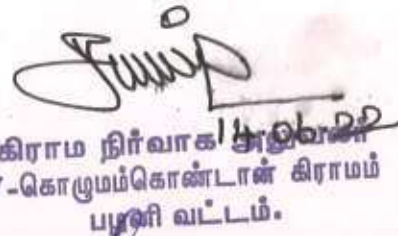 14.06.22
கிராம நிர்வாக அலுவலர்
-கொழுமம்கொண்டான் கிராமம்
பழனி வட்டம்.